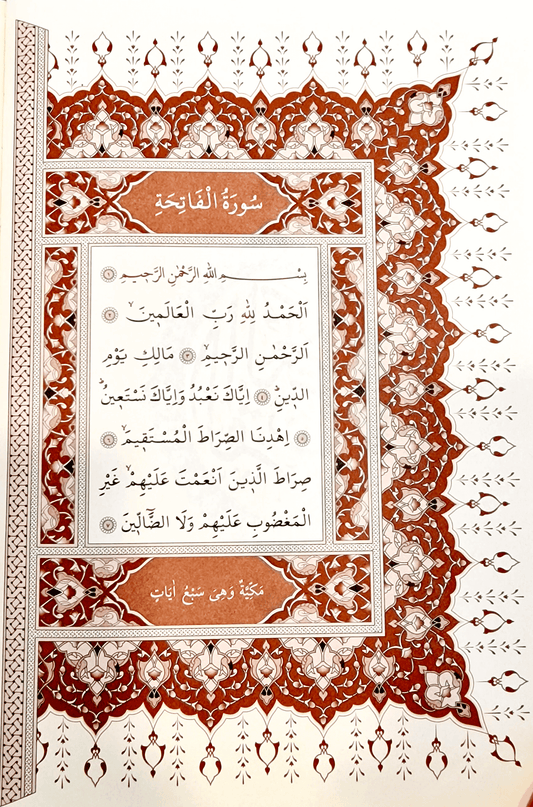 سُورَةُ الْفَاتِحَةِ
بِسْمِ اللهِ الرَّحْمٰنِ الرَّحِيمِ ﴿١﴾
اَلْحَمْدُ لِلهِ رَبِّ الْعَالَمِينَۙ ﴿٢﴾
اَلرَّحْمٰنِ الرَّحِيمِۙ ﴿٣﴾ مَالِكِ يَوْمِ
الدِّينِۜ ﴿٤﴾ اِيَّاكَ نَعْبُدُ وَاِيَّاكَ نَسْتَعِينُۜ
﴿٥﴾ اِهْدِنَا الصِّرَاطَ الْمُسْتَقِيمَۙ ﴿٦﴾
صِرَاطَ الَّذِينَ اَنْعَمْتَ عَلَيْهِمْۙ غَيْرِ
الْمَغْضُوبِ عَلَيْهِمْ وَلَا الضَّٓالِّينَ ﴿٧﴾
مَكِّيَّةٌ وَهِىَ سَبْعُ اٰيَاتٍ